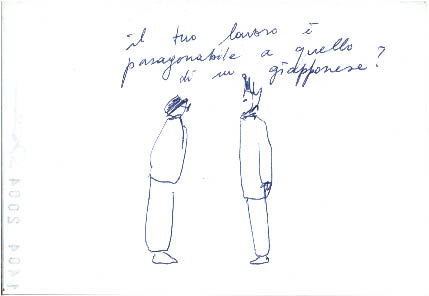 il tuo lavoro è
paragonabile a quello
di un giapponese?
1404 2004